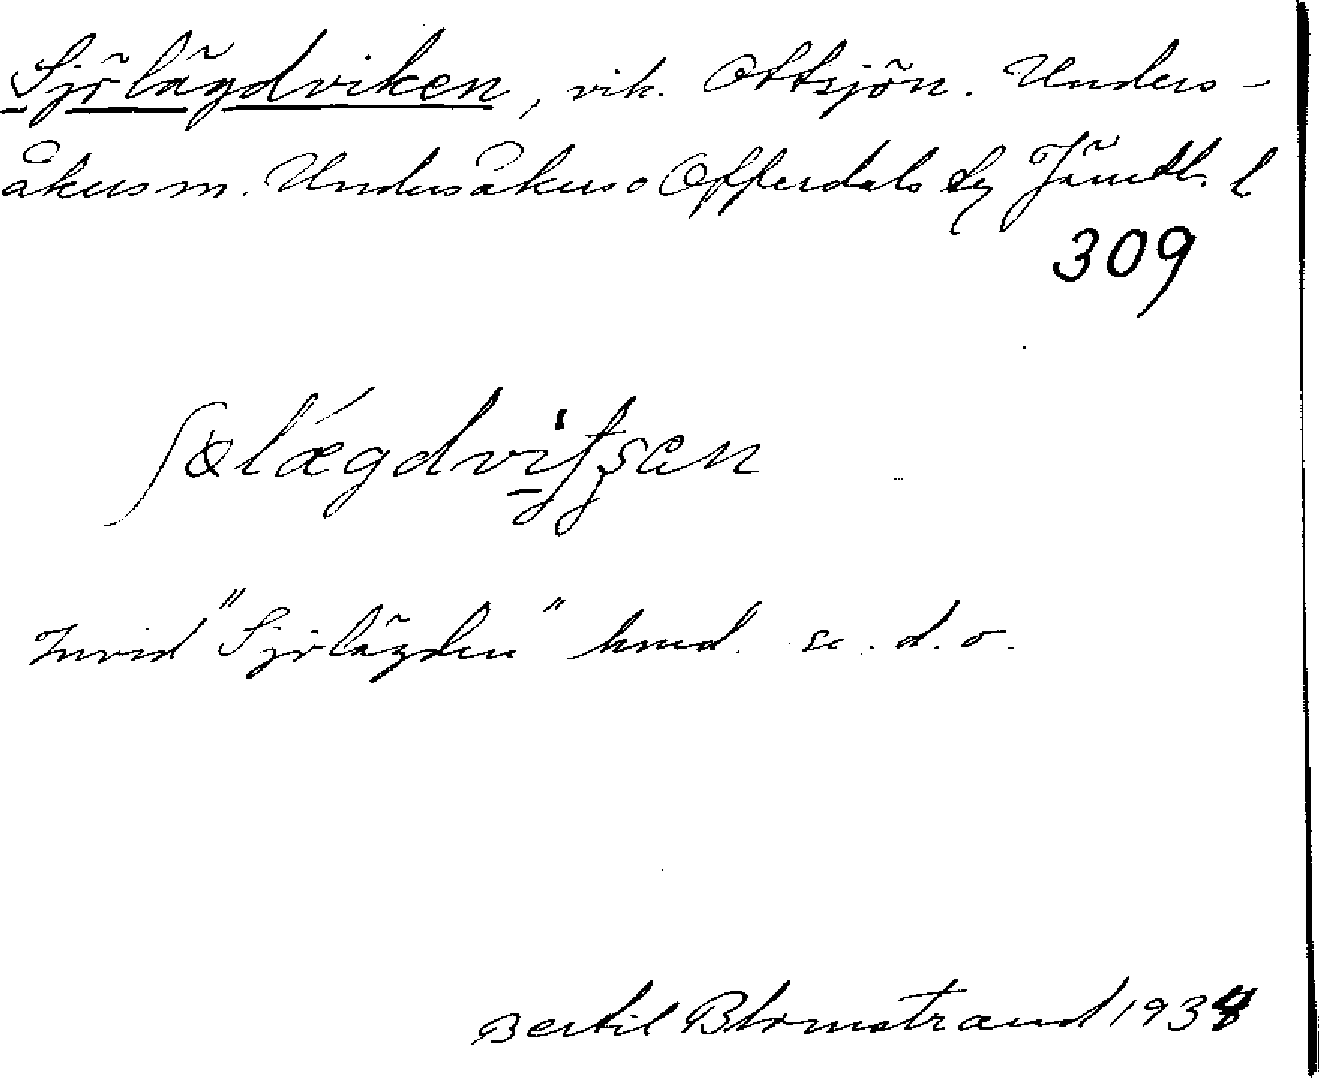 Sjölägdviken, vik. Ottsjön. Unders-
åkers sn. Undersåkers o Offerdals tg Jämtl. l
309
ʃølǽgdvi̱
Invid "Sjölägden" hmd. se. d. o.
Bertil Blomstrand 193